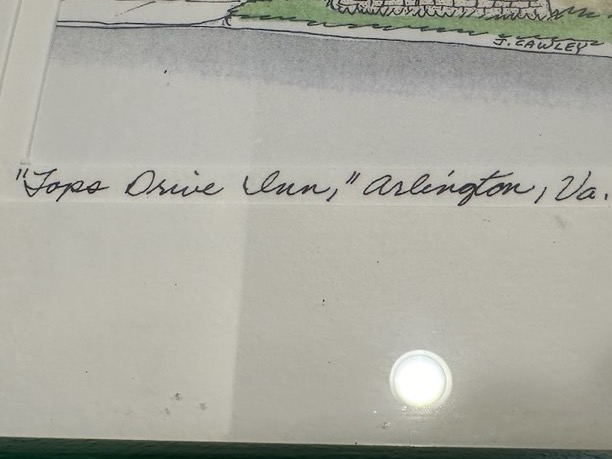 J. CAWLEY
"Tops Drive Inn," Arlington, Va.